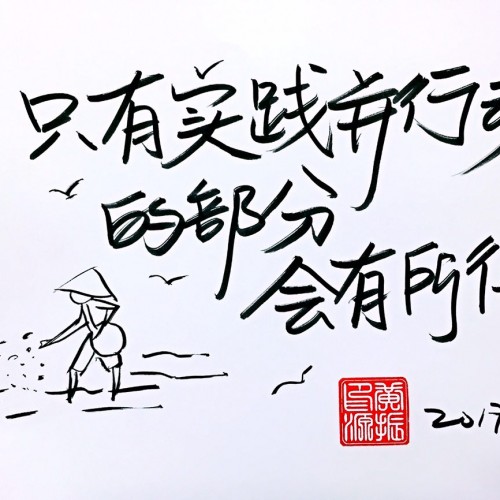 只有实践并行
的部分
会有所
黄振源印
2017